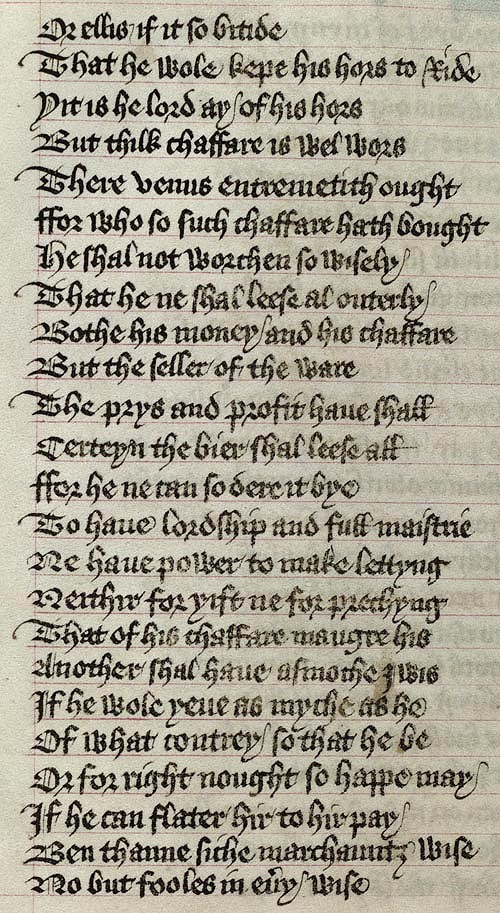 Or ellis / if it so bitide
That he wole kepe his hors to Ride
Yit is he lord ay / of his hors
But thilk chaffare is wel wors
There venus entremetith ought
ffor who so such chaffare hath bought
He shal not worchen so wisely /
That he ne shal leese al outerly /
Bothe his money / and his chaffare
But the seller of the ware
The prys and profit haue shall
Certeyn the bier shal leese all
ffor he ne can so dere it bye
To haue lordship and full maistrie
Ne haue power to make lettyng
Neithir for yift ne for prechyng
That of his chaffare maugre his
Another shal haue asmoche Iwis
If he wole yeue as myche as he
Of what contrey / so that he be
Or for right nought so happe may /
If he can flater hir to hir pay /
Ben thanne siche marchauntz wise
No but fooles in eủy / wise